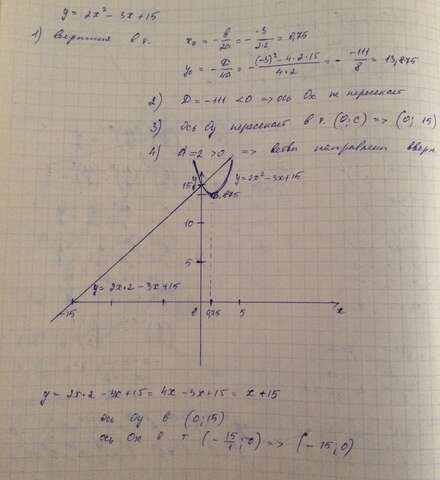 y = 2x² - 3x + 15
1) Вершина в т. x₀ = -b/2a = - -3/2·2 = 0,75
y₀ = -D/4a = - (-3)² - 4·2·15/4·2 = - -111/8 = 13,875
2) D = -111 < 0 => ось Ox не пересекает
3) Ось Oy пересекает в т. (0; c) => (0; 15)
4) A = 2 > 0 => ветви направлены вверх
y
15
y = 2x² - 3x + 15
13,875
10
5
y = 2x·2 - 3x + 15
-15
0
0,75
5
x
y = 2x·2 - 3x + 15 = 4x - 3x + 15 = x + 15
ось Oy в (0; 15)
ось Ox в т (-15/1; 0) => (-15; 0)